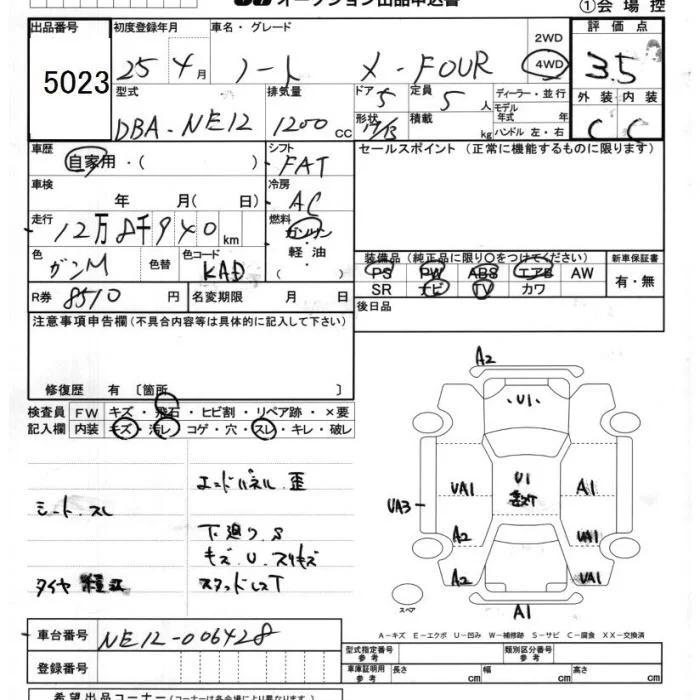 オークション出品申込書
①会場控
出品番号 初度登録年月 車名・グレード 評価点
5023
25 4月 ノート X-FOUR 2WD 4WD 3.5
型式 排気量 ドア 定員 ディーラー・並行 外装 内装
DBA-NE12 1200cc 5 5人 モデル年式 年式 C C
形状 積載 kg ハンドル 左・右
車歴 シフト セールスポイント (正常に機能するものに限ります)
自家用・( ) FAT
車検 冷房
年 月( 日) AC
走行 燃料
12万8千940km ガソリン
軽油
( )
色 色替 色コード 装備品 (純正品に限り○をつけてください) 新車保証書
ガンM KAD PS PW ABS エアB AW 有・無
SR ナビ TV カワ
R券 8510円 名変期限 月 日 後日品
注意事項申告欄(不具合内容等は具体的に記入して下さい)
修復歴 有〔箇所 〕
検査員 FW キズ・飛石・ヒビ割・リペア跡・×要
記入欄 内装 キズ・汚レ・コゲ・穴・スレ・キレ・破レ
エンドパネル.歪
シート.スレ
下廻り.S
キズ.U.スリキズ
タイヤ
スタッドレスT
A2
U1
UA1 U1 A1
UA3
A2 UA1
A2 UA1
スペア A1
A-キズ E-エクボ U-凹み W-補修跡 S-サビ C-腐食 XX-交換済
車台番号 NE12-006428
登録番号
型式指定番号 参考 類別区分番号 参考
車庫証明用 参考 長さ cm 幅 cm 高さ cm
希望出品コーナー(コーナーは各会場により異なります)